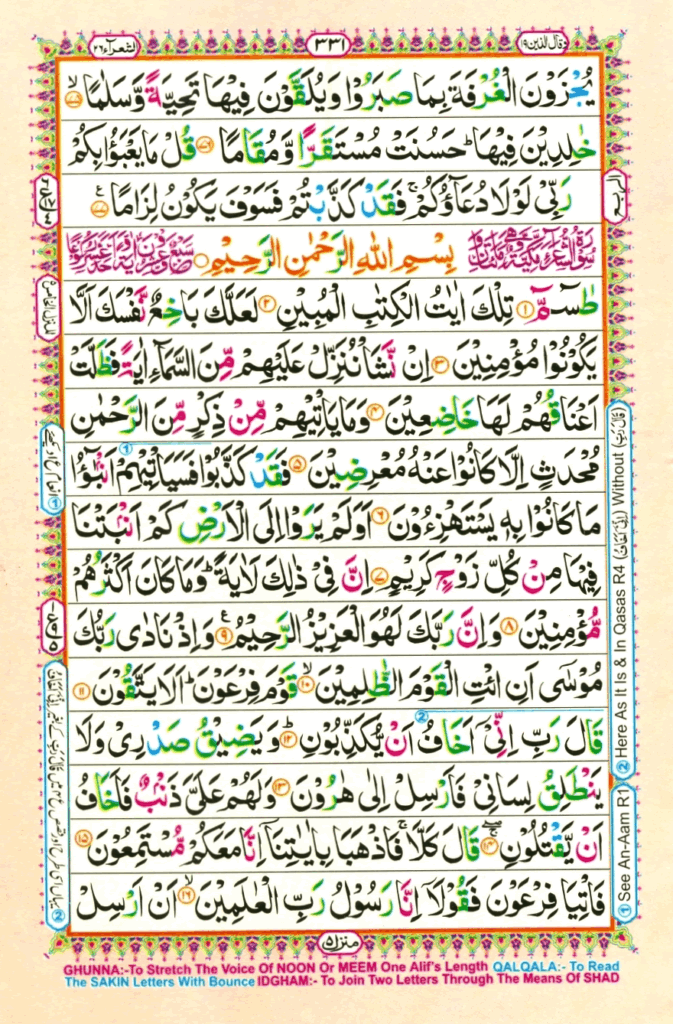 وقال الذين ١٩
٣٣١
الشعرآء ٢٦
يُجْزَوْنَ الْغُرْفَةَ بِمَا صَبَرُوْا وَيُلَقَّوْنَ فِيْهَا تَحِيَّةً وَّسَلٰمًا ۙ ﴿٧٥﴾
خٰلِدِيْنَ فِيْهَا ؕ حَسُنَتْ مُسْتَقَرًّا وَّمُقَامًا ﴿٧٦﴾ قُلْ مَا يَعْبَؤُا بِكُمْ
رَبِّيْ لَوْلَا دُعَآؤُكُمْ ۚ فَقَدْ كَذَّبْتُمْ فَسَوْفَ يَكُوْنُ لِزَامًا ﴿٧٧﴾
بِسْمِ اللهِ الرَّحْمٰنِ الرَّحِيْمِ
طٰسٓمّٓ ﴿١﴾ تِلْكَ اٰيٰتُ الْكِتٰبِ الْمُبِيْنِ ﴿٢﴾ لَعَلَّكَ بَاخِعٌ نَّفْسَكَ اَلَّا
يَكُوْنُوْا مُؤْمِنِيْنَ ﴿٣﴾ اِنْ نَّشَاْ نُنَزِّلْ عَلَيْهِمْ مِّنَ السَّمَآءِ اٰيَةً فَظَلَّتْ
اَعْنَاقُهُمْ لَهَا خٰضِعِيْنَ ﴿٤﴾ وَمَا يَاْتِيْهِمْ مِّنْ ذِكْرٍ مِّنَ الرَّحْمٰنِ
مُحْدَثٍ اِلَّا كَانُوْا عَنْهُ مُعْرِضِيْنَ ﴿٥﴾ فَقَدْ كَذَّبُوْا فَسَيَاْتِيْهِمْ اَنْۢبٰٓؤُا
مَا كَانُوْا بِهٖ يَسْتَهْزِءُوْنَ ﴿٦﴾ اَوَلَمْ يَرَوْا اِلَى الْاَرْضِ كَمْ اَنْۢبَتْنَا
فِيْهَا مِنْ كُلِّ زَوْجٍ كَرِيْمٍ ﴿٧﴾ اِنَّ فِيْ ذٰلِكَ لَاٰيَةً ؕ وَمَا كَانَ اَكْثَرُهُمْ
مُّؤْمِنِيْنَ ﴿٨﴾ وَاِنَّ رَبَّكَ لَهُوَ الْعَزِيْزُ الرَّحِيْمُ ﴿٩﴾ وَاِذْ نَادٰى رَبُّكَ
مُوْسٰٓى اَنِ ائْتِ الْقَوْمَ الظّٰلِمِيْنَ ۙ ﴿١٠﴾ قَوْمَ فِرْعَوْنَ ؕ اَلَا يَتَّقُوْنَ ﴿١١﴾
قَالَ رَبِّ اِنِّيْٓ اَخَافُ اَنْ يُّكَذِّبُوْنِ ؕ ﴿١٢﴾ وَيَضِيْقُ صَدْرِيْ وَلَا
يَنْطَلِقُ لِسَانِيْ فَاَرْسِلْ اِلٰى هٰرُوْنَ ﴿١٣﴾ وَلَهُمْ عَلَيَّ ذَنْۢبٌ فَاَخَافُ
اَنْ يَّقْتُلُوْنِ ۚ ﴿١٤﴾ قَالَ كَلَّا ۚ فَاذْهَبَا بِاٰيٰتِنَآ اِنَّا مَعَكُمْ مُّسْتَمِعُوْنَ ﴿١٥﴾
فَاْتِيَا فِرْعَوْنَ فَقُوْلَآ اِنَّا رَسُوْلُ رَبِّ الْعٰلَمِيْنَ ۙ ﴿١٦﴾ اَنْ اَرْسِلْ
② Here As It Is & In Qasas R4 Without (قَالَ رَبِّ)
① See An-Aam R1
منزل ٥
GHUNNA:-To Stretch The Voice Of NOON Or MEEM One Alif's Length QALQALA:- To Read
The SAKIN Letters With Bounce IDGHAM:- To Join Two Letters Through The Means Of SHAD